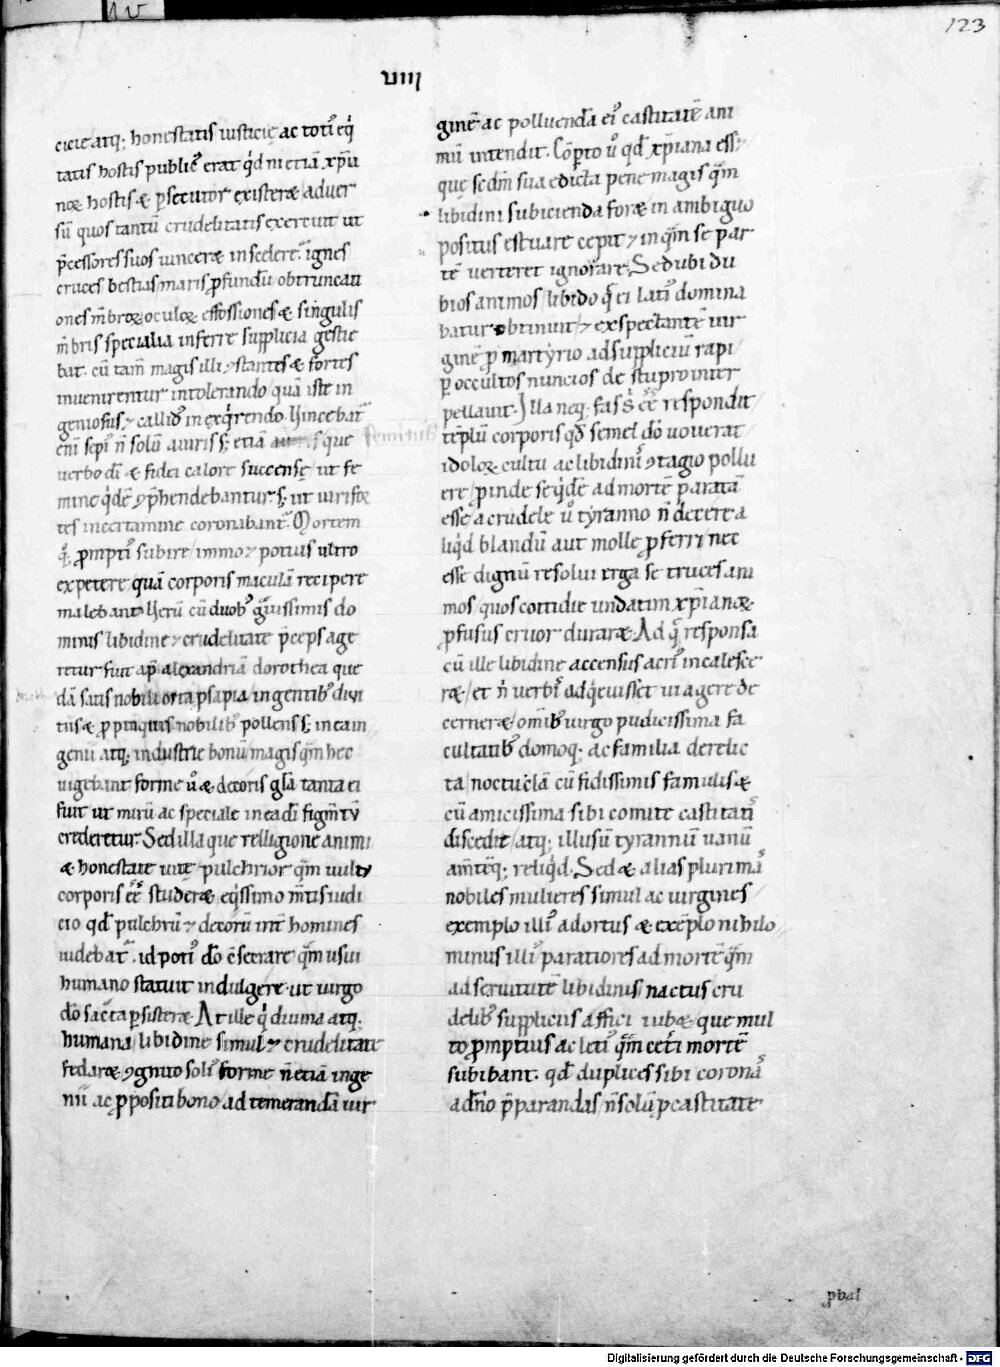 123
VIII
cicie atq; honestatis iusticię ac toti᷒ eq̇
tatis hostis public᷒ erat q̇d ni etiā xp̄ia
noꝝ hostis & ꝑsecutor existeret aduer
sū quos tantū crudelitatis exercuit ut
p̄cessores suos uinceret in scelere. ignes
cruces bestias maris ꝓfundū obtruncati
ones m̄broꝝ oculoꝝ effossiones & singulis
m̄bris specialia inferre supplicia gestie
bat. cū tam̄ magis illi ꝯstantes & fortes
inuenirentur in tolerando quā iste in
geniosus & callid᷒ in exq̇rendo. Hinc ebat̄
eni sepi᷒ n̄ solū a uiris s; etiā que
uerbo dī & fidei calore succensę ut fe
mine q̇dē ꝯp̄hendebantur s; ut uiri for
tes in certamine coronabant̄. Mortem
q̇ ꝓmpti᷒ subire immo & potius ultro
expetere quā corporis maculā recipere
malebant. Uerū cū duob᷒ g̃uissimis do
minis libidine & crudelitate p̄ceps age
retur fuit ap̄ alexandriā dorothea que
dā satis nobili orta ꝓsapia ingentib᷒ diui
tiis & ꝓpinquis nobilib᷒ pollens s; in ea in
genii atq; industrie bonū magis qm̄ hec
uigebant forme u᷒o & decoris gl̄a tanta ei
fuit ut mirū ac speciale in ea dī figm̄tū
crederetur. Sed illa que relligione animi
& honestate uitę pulchrior qm̄ uultu
corporis eēt studeret eq̇ssimo m̄tis iudi
cio qd̄ pulchrū & decorū int̄ homines
uidebat̄. id poti᷒ dō c̄secrare qm̄ usui
humano statuit indulgere ut uirgo
dō sacrata ꝑsisteret. At ille q̇ diuina atq;
humana libidine simul & crudelitate
fedaret ꝯgnito soli᷒ forme n̄ etiā inge
nii ac ꝓpositi bono ad temerandā uir
ginē ac polluendā ei᷒ castitatē ani
mū intendit. Cōꝑto u᷒ qd̄ xp̄iana esset
que scdm̄ sua edicta pene magis qm̄
libidini subicienda foret in ambiguo
positus estuare cepit & in qm̄ se par
tē uerteret ignorare. Sed ubi du
bios animos libido q̄ ei lati᷒ domina
batur obtinuit & exspectantē uir
ginē ꝓ martyrio ad suppliciū rapi
ꝑ occultos nuncios de stupro inter
pellauit. Illa neq; fas s̄ eēt respondit
tēplū corporis qd̄ semel dō uouerat
idoloꝝ cultu ac libidini᷒ ꝯtagio pollu
ere ꝓinde se q̇dē ad mortē paratā
esse a crudele u᷒ tyranno n̄ decere a
liq̇d blandū aut molle ꝓferri nec
esse dignū resolui erga se truces ani
mos quos cottidie undatim xp̄ianoꝝ
ꝓfusus cruor duraret. Ad q̄ responsa
cū ille libidine accensus acri᷒ incalesce
ret / et n̄ uerbis adq̇euisset ui agere de
cerneret omib᷒ uirgo pudicissima fa
cultatib᷒ domoq; ac familia derelic
ta noctu clā cū fidissimis famulis &
cū amicissima sibi comite castitati᷒
discedit / atq; illusū tyrannū uanū
am̄tēq; reliq̇d. Sed & alias plurima᷒
nobiles mulieres simul ac uirgines
exemplo illi᷒ adortus & exēplo nihilo
minus illi᷒ paratiores ad mortē qm̄
ad seruitutē libidinis nactus cru
delib᷒ suppliciis affici iubet que mul
to ꝓmptius ac leti᷒ qm̄ ceti mortē
subibant. qd̄ duplices sibi corona᷒
a dn̄o p̄parandas n̄ solū ꝓ castitate
Digitalisierung gefördert durch die Deutsche Forschungsgemeinschaft - DFG